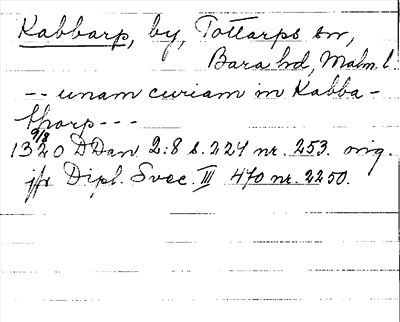 Kabbarp, by, Tottarps sn,
Bara hd, Malm. l.
-- unam curiam in Kabba-
thorp ---
9/8
1320 DDan 2:8 s. 224 nr. 253. orig.
jfr Dipl. Svec. III 470 nr. 2250.